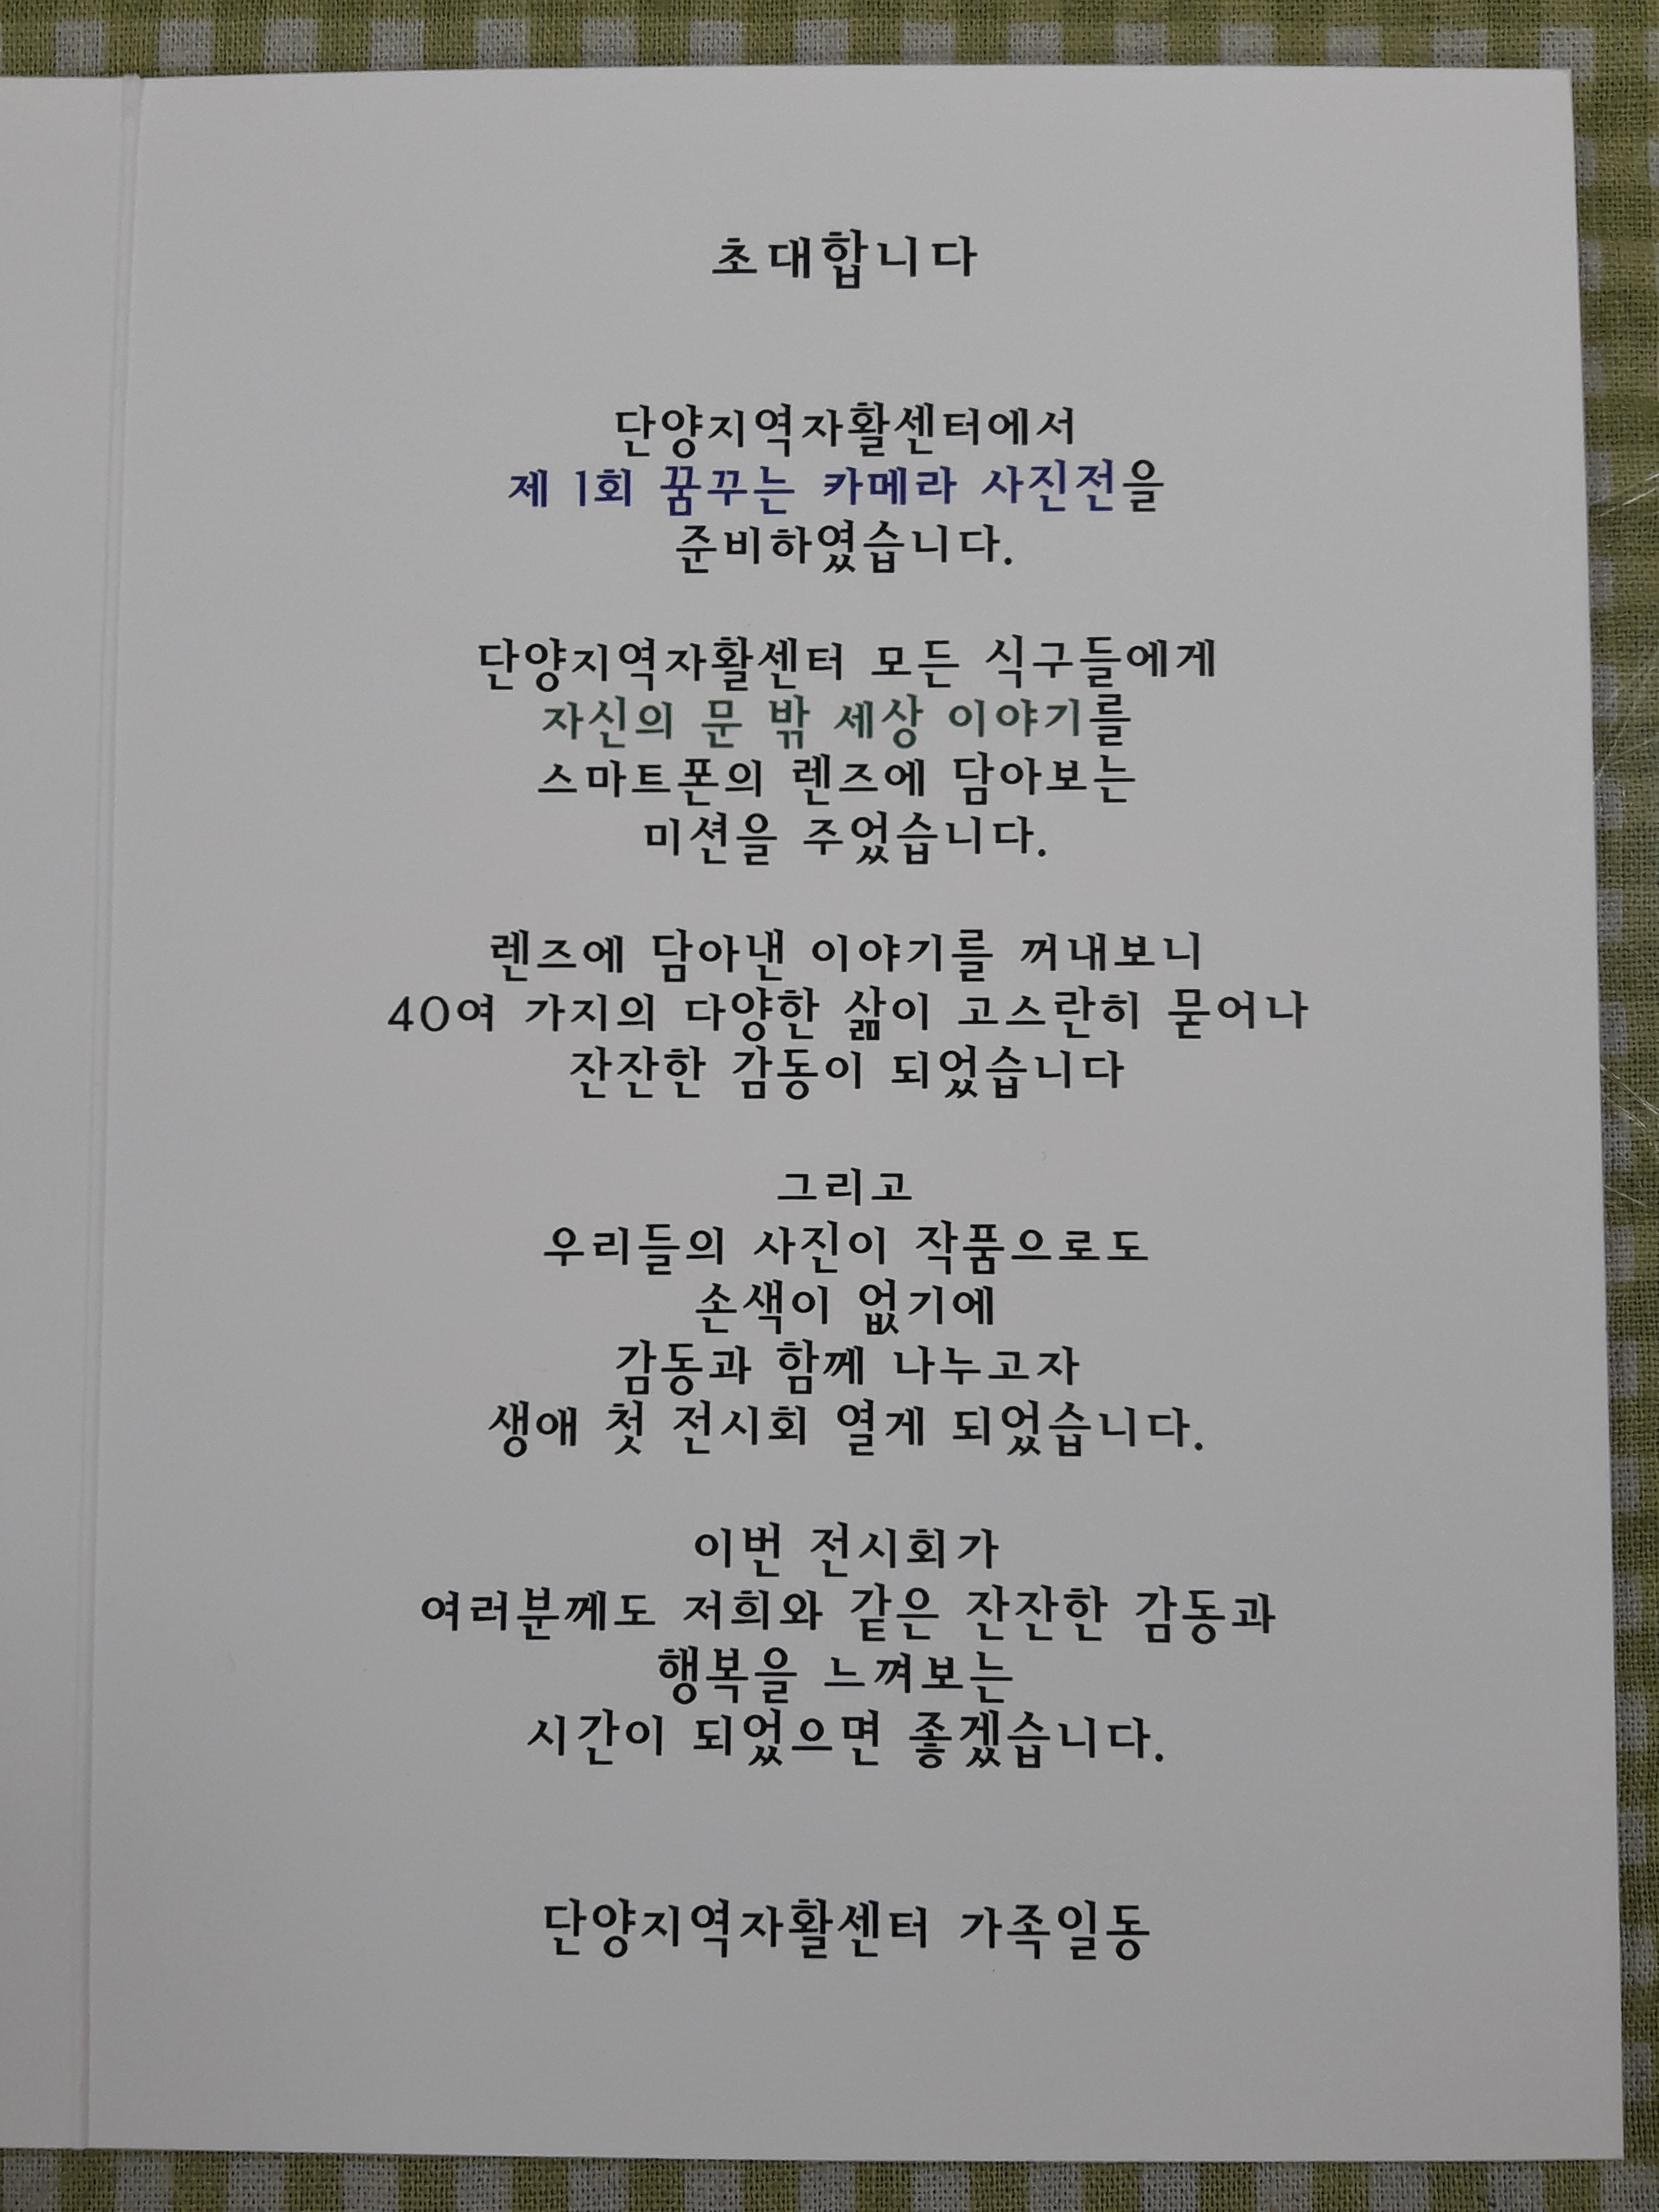 초대합니다
단양지역자활센터에서
제 1회 꿈꾸는 카메라 사진전을
준비하였습니다.
단양지역자활센터 모든 식구들에게
자신의 문 밖 세상 이야기를
스마트폰의 렌즈에 담아보는
미션을 주었습니다.
렌즈에 담아낸 이야기를 꺼내보니
40여 가지의 다양한 삶이 고스란히 묻어나
잔잔한 감동이 되었습니다
그리고
우리들의 사진이 작품으로도
손색이 없기에
감동과 함께 나누고자
생애 첫 전시회 열게 되었습니다.
이번 전시회가
여러분께도 저희와 같은 잔잔한 감동과
행복을 느껴보는
시간이 되었으면 좋겠습니다.
단양지역자활센터 가족일동